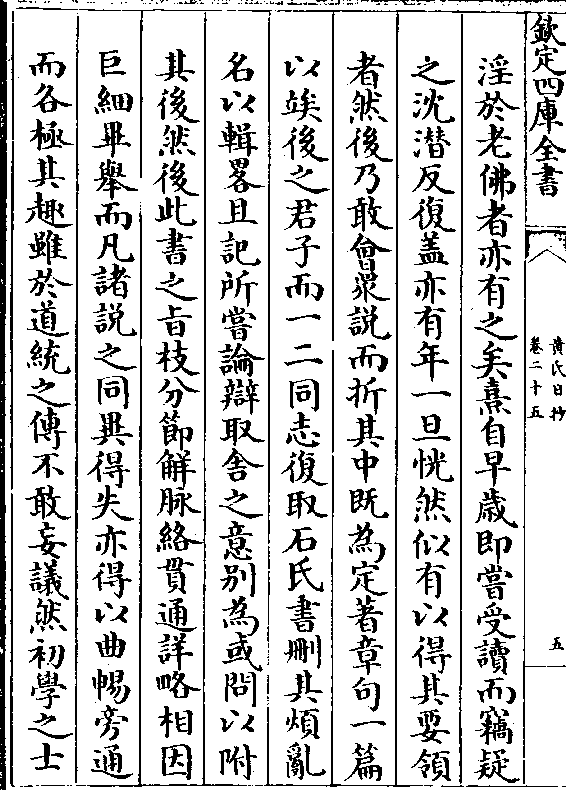 欽定四庫全書
黄氏日抄
卷二十五
五
淫於老佛者亦有之矣熹自早歳即嘗受讀而竊疑
之沈潜反復盖亦有年一旦恍然似有以得其要領
者然後乃敢會衆說而折其中既為定著章句一篇
以竢後之君子而一二同志復取石氏書刪其煩亂
名以輯畧且記所嘗論辯取舎之意别為或問以附
其後然後此書之㫖枝分節解脉絡貫通詳略相因
巨細畢舉而凡諸説之同異得失亦得以曲暢旁通
而各極其趣雖於道統之傳不敢妄議然初學之士